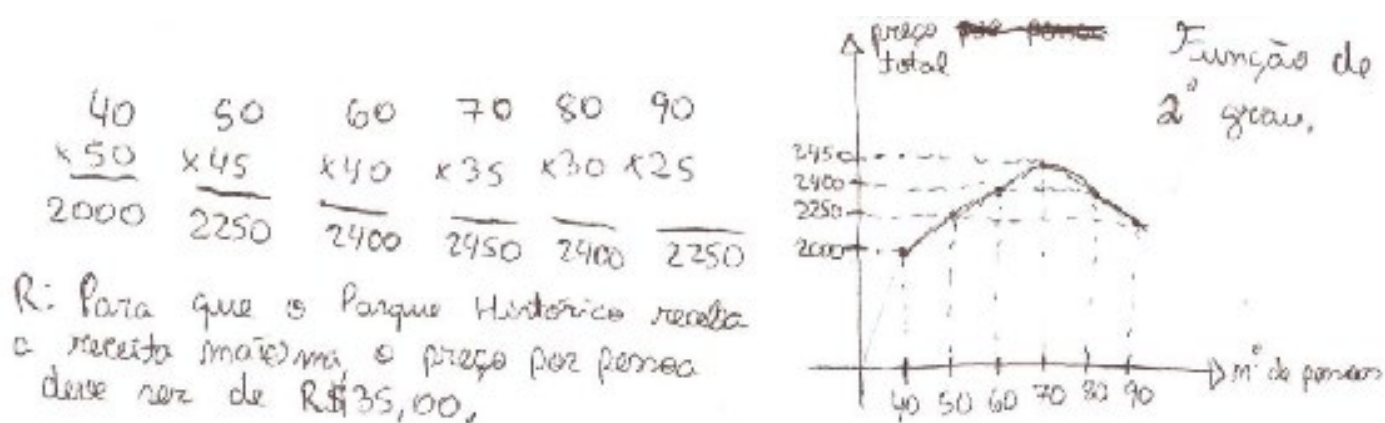 40 50 60 70 80 90
x50 x45 x40 x35 x30 x25
2000 2250 2400 2450 2400 2250
R: Para que o Parque Histórico receba
a receita máxima, o preço por pessoa
deve ser de R$35,00,
preço por pessoa
total
Função de
2º grau,
2450
2400
2250
2000
40 50 60 70 80 90
nº de pessoas